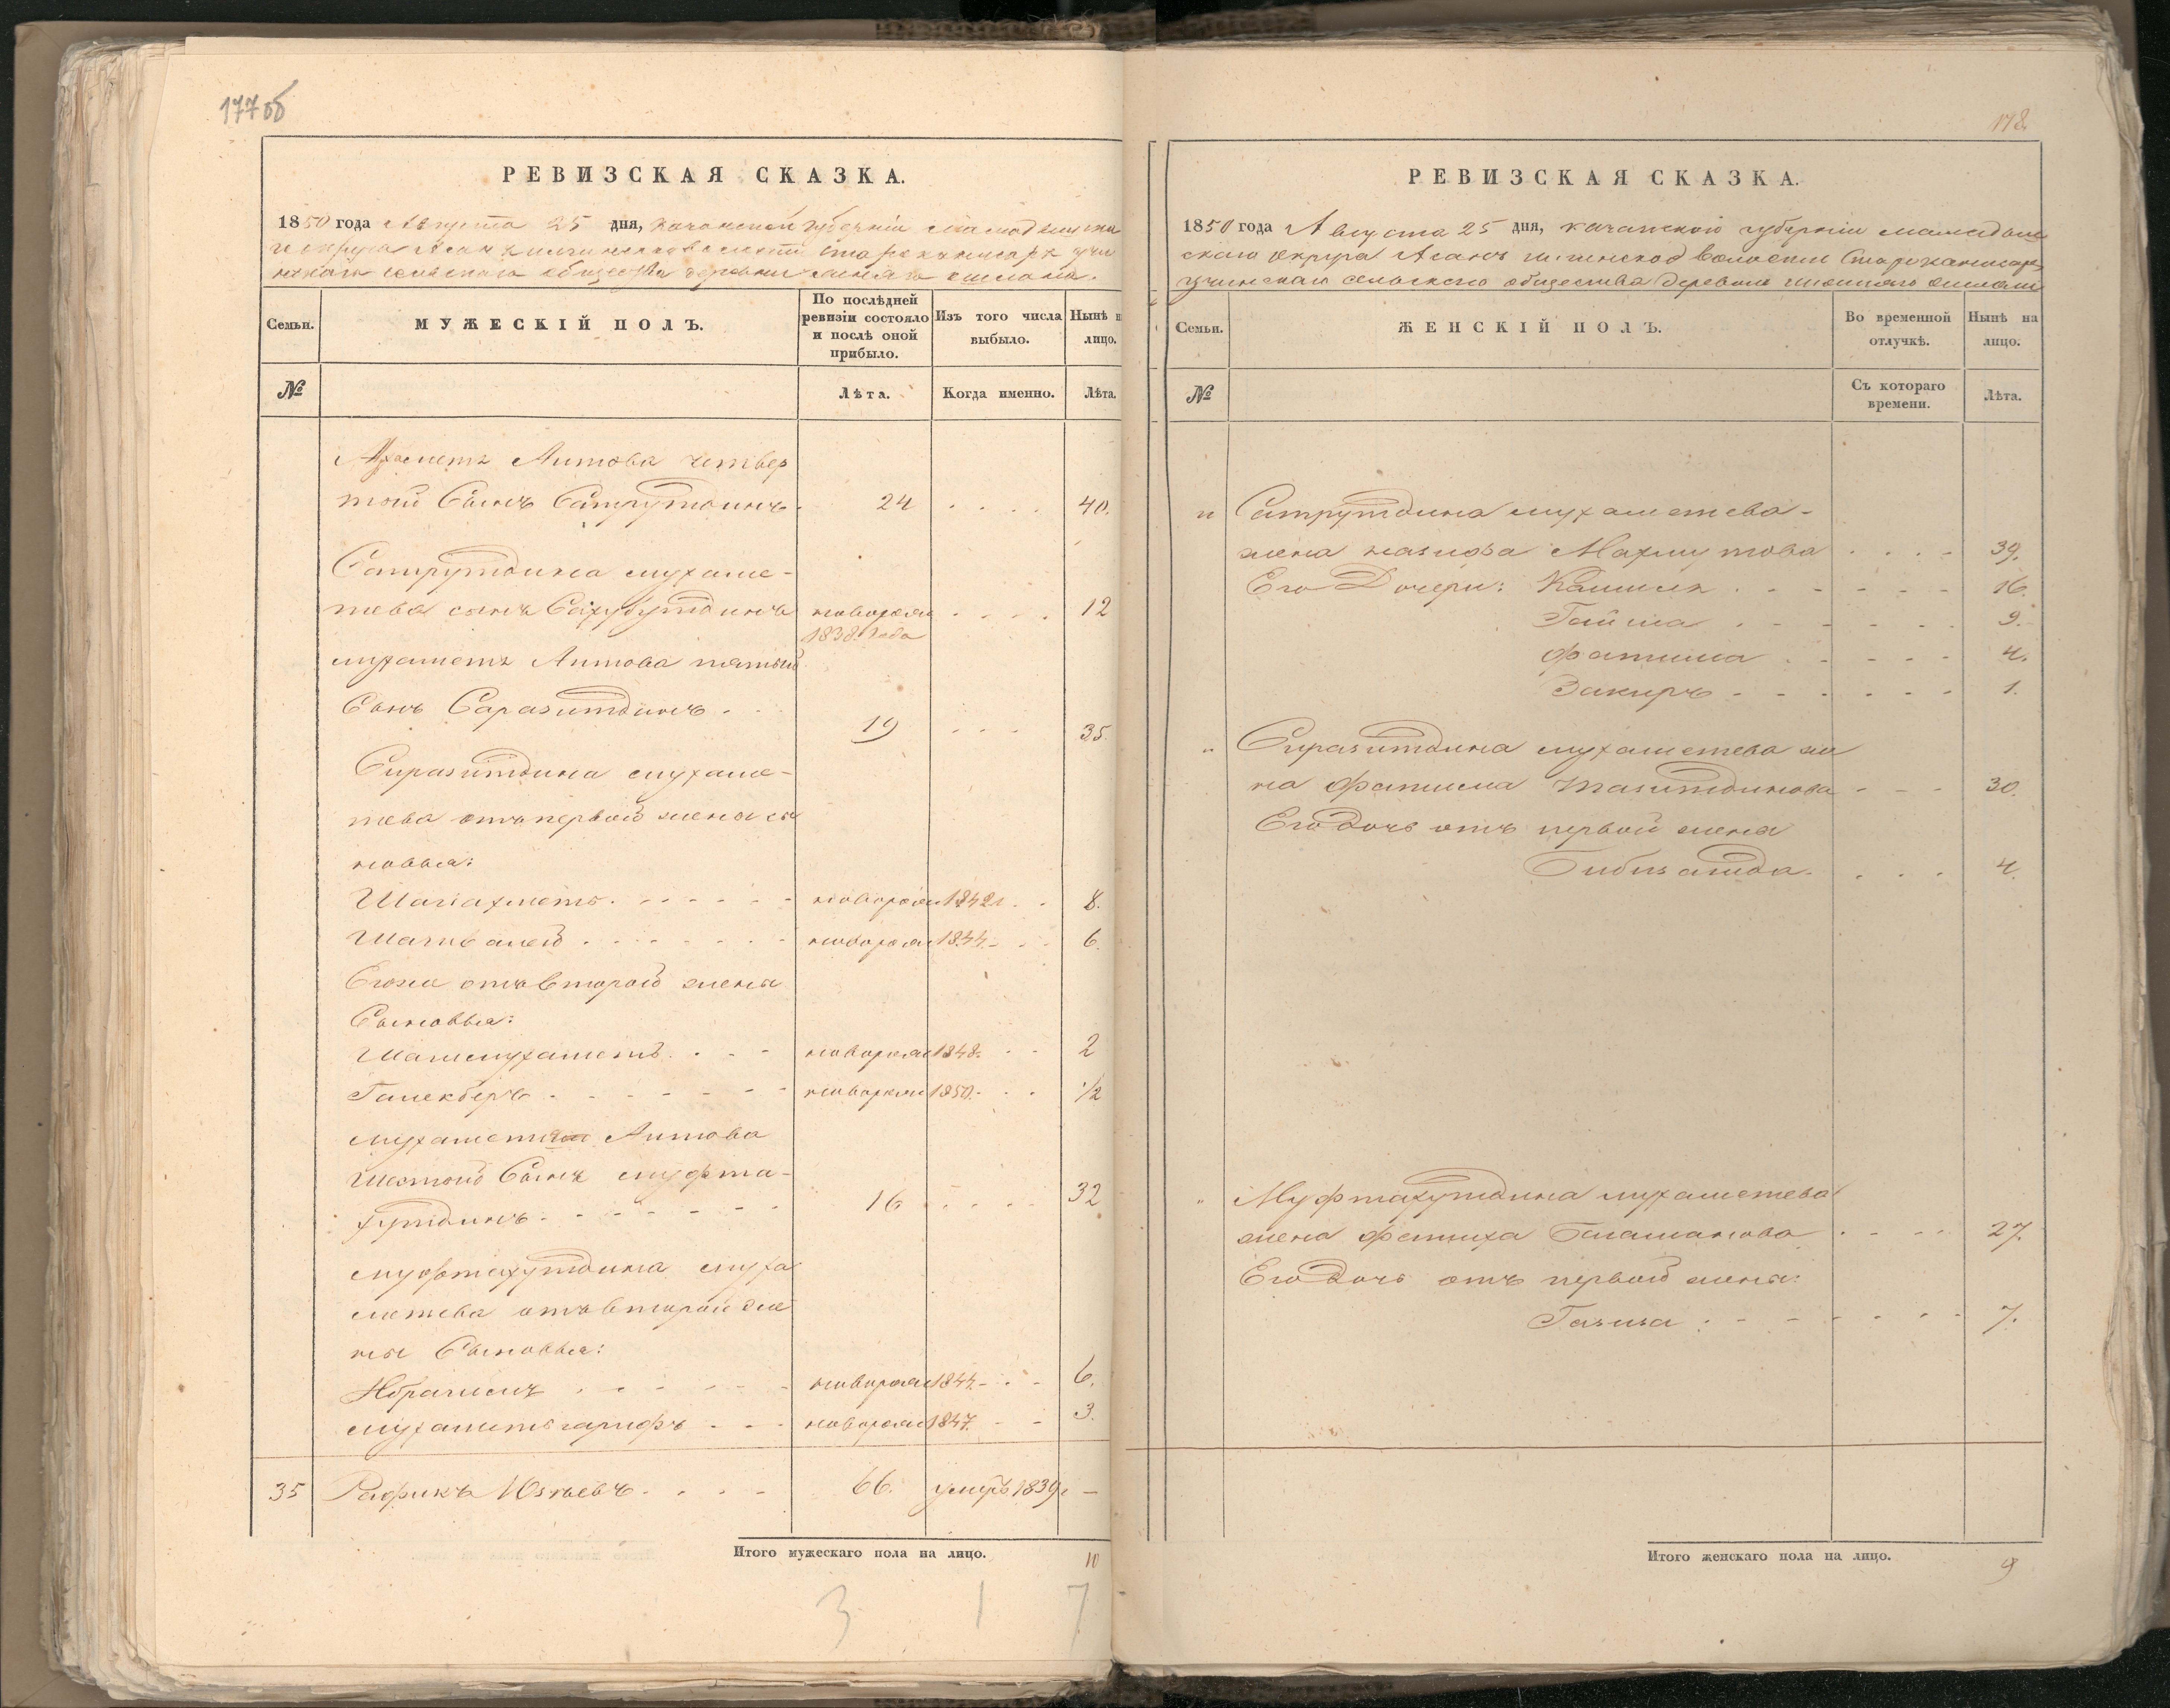 177об
РЕВИЗСКАЯ СКАЗКА.
1850 года Августа 25 дня, казанской губерніи мамадышска
го округа волости
сельскаго общества деревни
Семьи.
МУЖЕСКІЙ ПОЛЪ.
По послѣдней ревизіи состояло и послѣ оной прибыло.
Изъ того числа выбыло.
Нынѣ н лицо.
№
Лѣта.
Когда именно.
Лѣта.
Мухаметъ Аитова четвер
той Сынъ Сатрутдинъ 24 40.
Сатрутдина мухаме-
тева сынъ новорож 12
1838 года
мухаметъ Аитова пятый
Сынъ Саразитдинъ 19 35.
Сиразитдина мухаме-
тева отъ первой жены сы
новья:
Шагіахметъ новорож 1842 8.
Шагивалей новорож 1844 6.
Егоже отъ второй жены
Сыновья:
Шагимухаметъ новорож 1848. 2
Галекберъ новорож 1850. 1/2
мухамет Аитова
Шестой Сынъ муфта-
хутдинъ 16 32
муфтахутдина муха
метева отъ второй же
ны Сыновья:
Ибрагимъ новорож 1844 6.
мухаметгарифъ новорож 1847 3.
35 Рафикъ Юзеевъ 66. умеръ 1839 —
Итого мужескаго пола на лицо. 10
3 1 7
178.
РЕВИЗСКАЯ СКАЗКА.
1850 года Августа 25 дня, казанской губерніи мамадыш
скаго округа волости
сельскаго общества деревни
Семьи.
ЖЕНСКІЙ ПОЛЪ.
Во временной отлучкѣ.
Нынѣ на лицо.
№
Съ котораго времени.
Лѣта.
Сатрутдина мухаметева
жена назифа Махмутова 39.
Его Дочери: Камиля 16.
Гайша 9.
фатима 4.
Закиръ 1.
Сиразитдина мухаметева же
на фатима Тазитдинова 30.
Его Дочь отъ первой жены
Бибизагида 4.
Муфтахутдина мухаметева
жена фатиха 27.
Его Дочь отъ первой жены:
Газиза 7.
Итого женскаго пола на лицо. 9